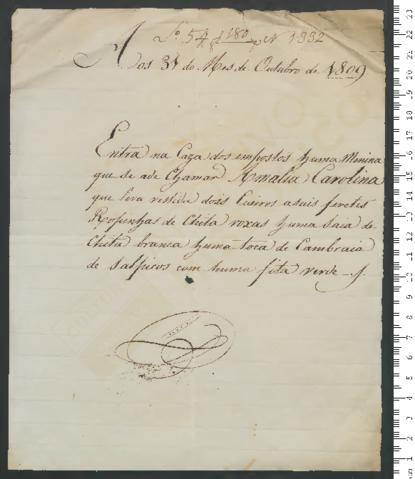 Lº 54 f 180 Nº 1332
Aos 31 do Mes de Outubro de 1809
Entra na Caza dos empostos huma Minina
que se ade Chamar Amalia Carolina
que leva vestida dois Cueiros azuis
de Chita roxas huma Saia de
Chita branca huma toca de Cambraia
de Salpicos com huma fita verde